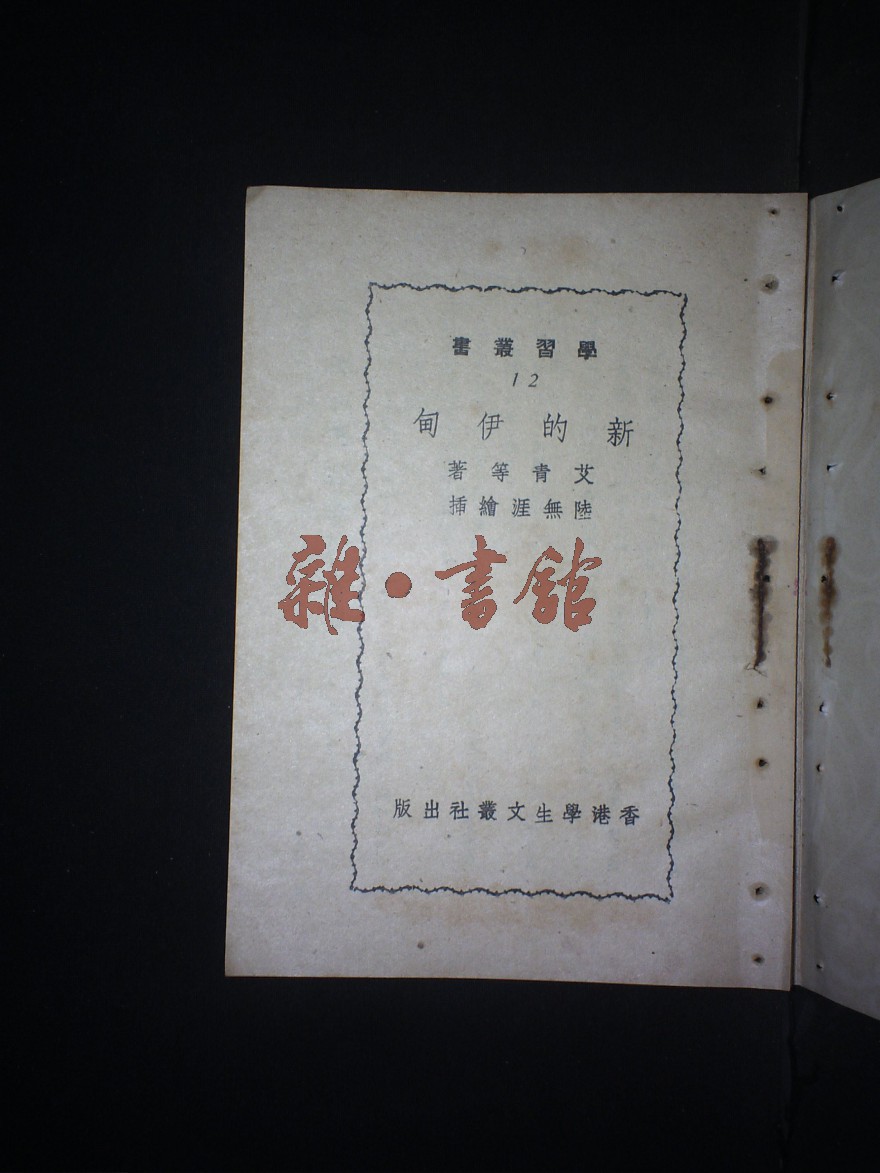 學習叢書
12
新的伊甸
艾青等著
陸無涯繪插
雜·書館
香港學生文叢社出版